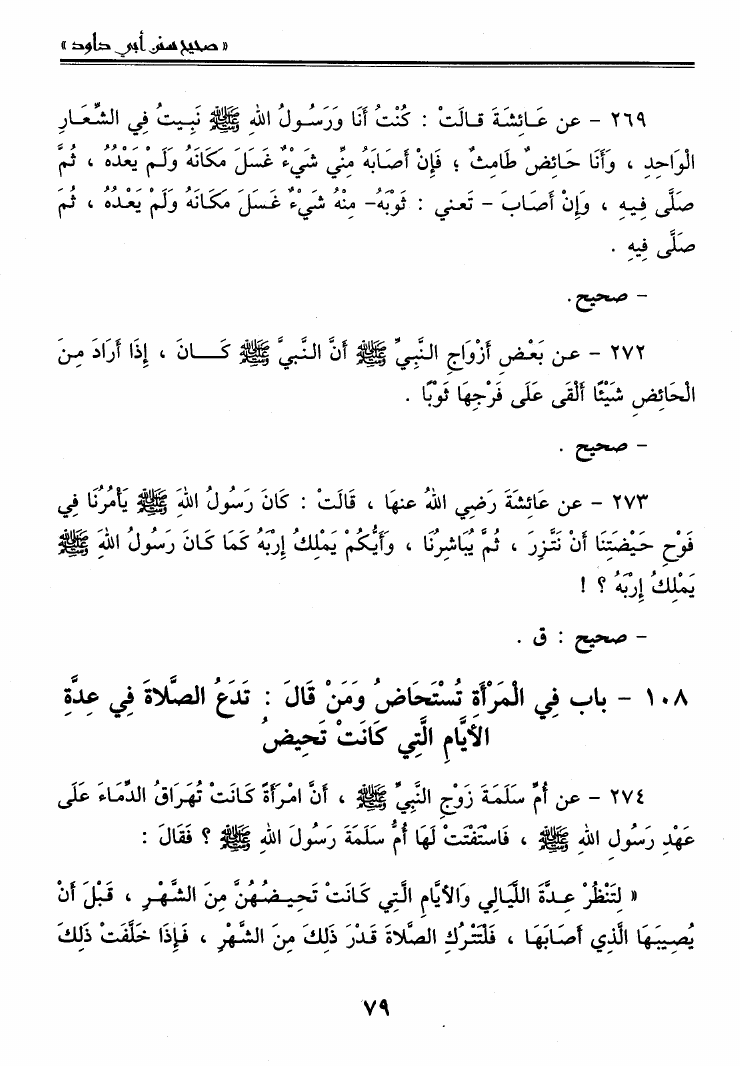 « صحيح سنن أبي داود »
٢٦٩ - عن عَائِشَةَ قالَتْ : كُنْتُ أَنَا وَرَسُولُ اللهِ ﷺ نَبِيتُ فِي الشِّعَارِ
الْوَاحِدِ ، وَأَنَا حَائِضٌ طَامِثٌ ؛ فَإِنْ أَصَابَهُ مِنِّي شَيْءٌ غَسَلَ مَكَانَهُ وَلَمْ يَعْدُهُ ، ثُمَّ
صَلَّى فِيهِ ، وَإِنْ أَصَابَ - تَعني : ثَوْبَهُ- مِنْهُ شَيْءٌ غَسَلَ مَكَانَهُ وَلَمْ يَعْدُهُ ، ثُمَّ
صَلَّى فِيهِ .
- صحيح.
٢٧٢ - عن بَعْضِ أَزْوَاجِ النَّبِيِّ ﷺ أَنَّ النَّبيَّ ﷺ كَـانَ ، إِذَا أَرَادَ مِنَ
الْحَائِضِ شَيْئًا أَلْقَى عَلَى فَرْجِهَا ثَوْبًا .
- صحيح .
٢٧٣ - عن عَائِشَةَ رَضِي اللهُ عنهَا ، قَالَتْ : كَانَ رَسُولُ اللهِ ﷺ يَأْمُرُنَا فِي
فَوْحِ حَيْضَتِنَا أَنْ نَتَّزِرَ ، ثُمَّ يُبَاشِرُنَا ، وَأَيُّكُمْ يَمْلِكُ إِرْبَهُ كَمَا كَانَ رَسُولُ اللهِ ﷺ
يَمْلِكُ إِرْبَهُ ؟ !
- صحيح : ق .
١٠٨ - باب فِي الْمَرْأَةِ تُسْتَحَاضُ وَمَنْ قَالَ : تَدَعُ الصَّلاةَ فِي عِدَّةِ
الأيَّامِ الَّتِي كَانَتْ تَحِيضُ
٢٧٤ - عن أُمِّ سَلَمَةَ زَوْجِ النَّبِيِّ ﷺ ، أَنَّ امْرَأَةً كَانَتْ تُهَرَاقُ الدِّمَاءَ عَلَى
عَهْدِ رَسُولِ اللهِ ﷺ ، فَاسْتَفْتَتْ لَهَا أُمُّ سَلَمَةَ رَسُولَ اللهِ ﷺ ؟ فَقَالَ :
« لِتَنْظُرْ عِدَّةَ اللَّيَالِي وَالأَيَّامِ الَّتِي كَانَتْ تَحِيضُهُنَّ مِنَ الشَّهْرِ ، قَبْلَ أَنْ
يُصِيبَهَا الَّذِي أَصَابَهَا ، فَلْتَتْرُكِ الصَّلاةَ قَدْرَ ذَلِكَ مِنَ الشَّهْرِ ، فَإِذَا خَلَّفَتْ ذَلِكَ
٧٩